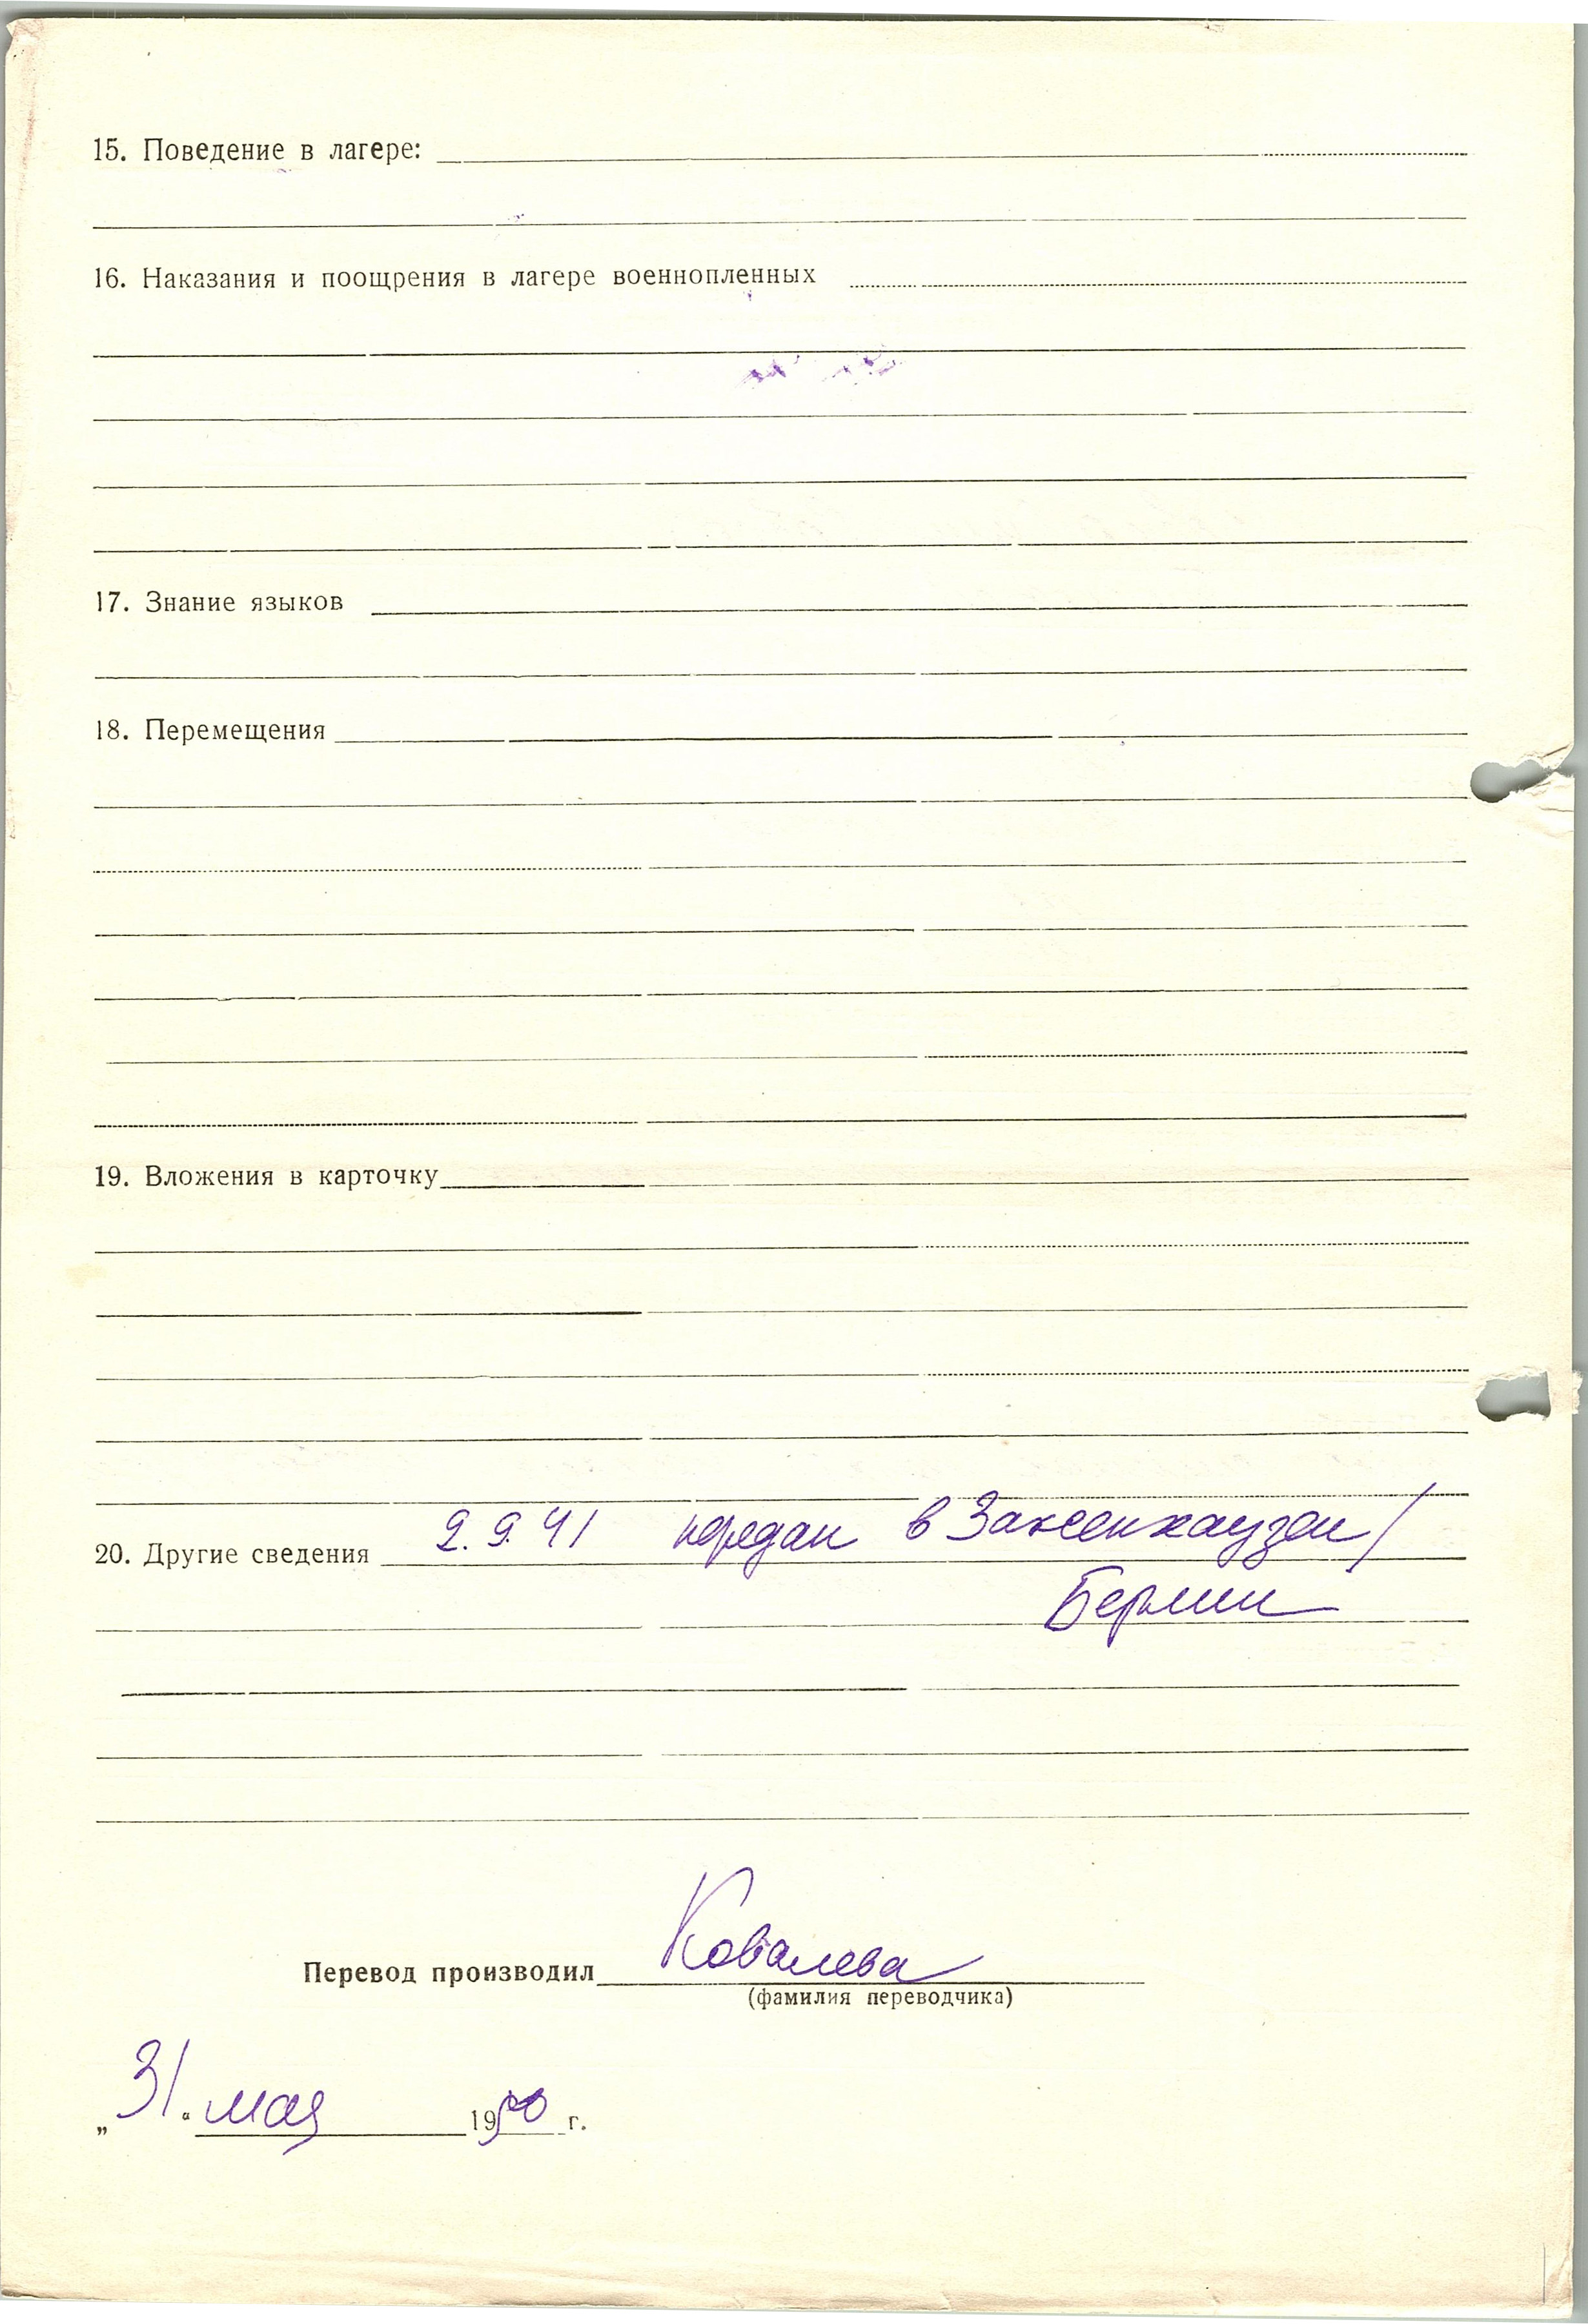 15. Поведение в лагере:
16. Наказания и поощрения в лагере военнопленных
17. Знание языков
18. Перемещения
19. Вложения в карточку
20. Другие сведения 2.9.41 передан в Заксенхаузен/
Берлин
Перевод производил Ковалева
(фамилия переводчика)
„31“ мая 1950 г.